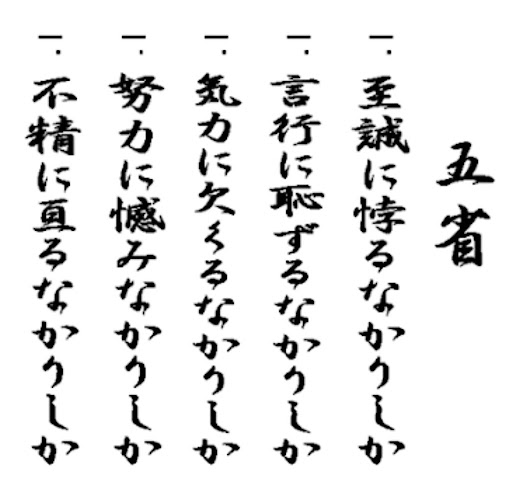 五省
一.至誠に悖るなかりしか
一.言行に恥ずるなかりしか
一.気力に欠くるなかりしか
一.努力に憾みなかりしか
一.不精に亘るなかりしか